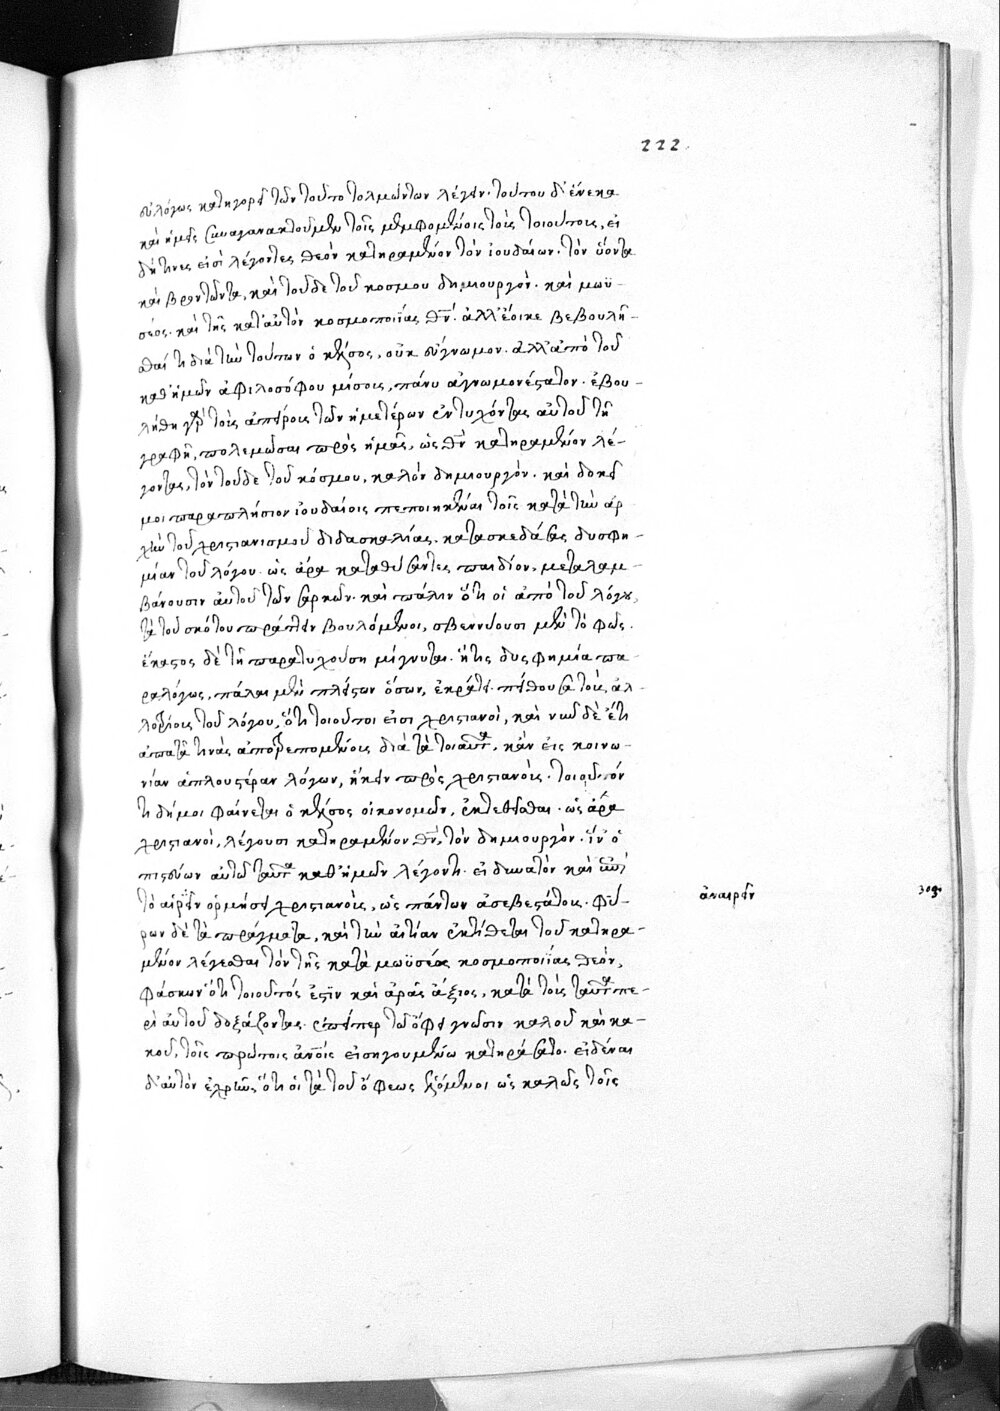 222
εὐλόγως κατηγορεῖ τῶν τοῦτο τολμώντων λέγειν. τούτου δ' ἕνεκα
καὶ ἡμεῖς συναγανακτοῦμεν τοῖς μεμφομένοις τοὺς τοιούτους, εἰ
δή τινες εἰσὶ λέγοντες θεὸν κατηραμένον τὸν ἰουδαίων. τὸν ὕοντα
καὶ βροντῶντα, καὶ τοῦδε τοῦ κόσμου δημιουργόν. καὶ μωϋ-
σέως. καὶ τῆς κατ' αὐτὸν κοσμοποιΐας θν̄. ἀλλ' ἔοικε βεβουλῆ-
σθαί τι διὰ τῶν τούτων ὁ κέλσος, οὐκ εὔγνωμον. ἀλλ' ἀπὸ τοῦ
καθ' ἡμῶν ἀφιλοσόφου μίσους, πάνυ ἀγνωμονέστατον. ἐβου-
λήθη γὰρ τοὺς ἀπείρους τῶν ἡμετέρων ἐντυχόντας αὐτοῦ τῇ
γραφῇ, πολεμῶσαι πρὸς ἡμᾶς, ὡς θν̄ κατηραμένον λέ-
γοντας, τὸν τοῦδε τοῦ κόσμου, καλὸν δημιουργόν. καὶ δοκεῖ
μοι παραπλήσιον ἰουδαίοις πεποιηκέναι τοῖς κατὰ τὴν ἀρ-
χὴν τοῦ χριστιανισμοῦ διδασκαλίας. κατασκεδάσας δυσφη-
μίαν τοῦ λόγου. ὡς ἄρα καταθύσαντες παιδίον, μεταλαμ-
βάνουσιν αὐτοῦ τῶν σαρκῶν. καὶ πάλιν ὅτι οἱ ἀπὸ τοῦ λόγου,
τὰ τοῦ σκότου πράττειν βουλόμενοι, σβεννύουσι μὲν τὸ φῶς.
ἕκαστος δὲ τῇ παρατυχούσῃ μίγνυται. ἥτις δυσφημία πα-
ραλόγως, πάλαι μὲν πλείστων ὅσων, ἐκράτει. πείθουσα τοὺς ἀλ-
λοτρίους τοῦ λόγου, ὅτι τοιοῦτοι εἰσι χριστιανοὶ, καὶ νῦν δὲ ἔτι
ἀπατᾶ τινὰς ἀποτρεπομένους διὰ τὰ τοιαῦτα, κἂν εἰς κοινω-
νίαν ἁπλουστέραν λόγων, ἥκειν πρὸς χριστιανούς. τοιοῦτόν
τι δή μοι φαίνεται ὁ κέλσος οἰκονομῶν, ἐκτεθεῖσθαι. ὡς ἄρα
χριστιανοὶ, λέγουσι κατηραμένον θν̄, τὸν δημιουργόν. ἵν' ὁ
πιστεύων αὐτῷ ταῦτα καθ' ἡμῶν λέγοντι. εἰ δυνατὸν καὶ
τὸ αἱρεῖν ὁρμήσει χριστιανοὺς, ὡς πάντων ἀσεβεστάτους. φύ-
ἀναιρεῖν
ρων δὲ τὰ πράγματα, καὶ τὴν αἰτίαν ἐκτίθεται τοῦ κατηρα-
μένον λέγεσθαι τὸν τῆς κατὰ μωϋσέως κοσμοποιΐας θεὸν,
φάσκων ὅτι τοιοῦτός ἐστὶν καὶ ἀρᾶς ἄξιος, κατὰ τοὺς ταῦτα πε-
ρὶ αὐτοῦ δοξάζοντας. ἐπείπερ τῷ ὄφει γνῶσιν καλοῦ καὶ κα-
κοῦ, τοῖς πρώτοις ἀν̄οις εἰσηγουμένῳ κατηράσατο. εἰδέναι
δ' αὐτὸν ἐχρῆν ὅτι οἱ τὰ τοῦ ὄφεως ἑλόμενοι ὡς καλῶς τοῖς